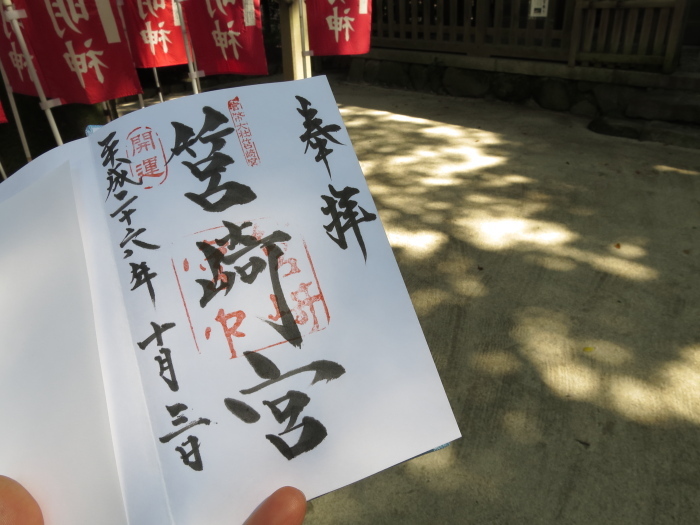 奉拝
筥崎宮
開運
平成二十六年 十月 三日
明神
明神
明神
神